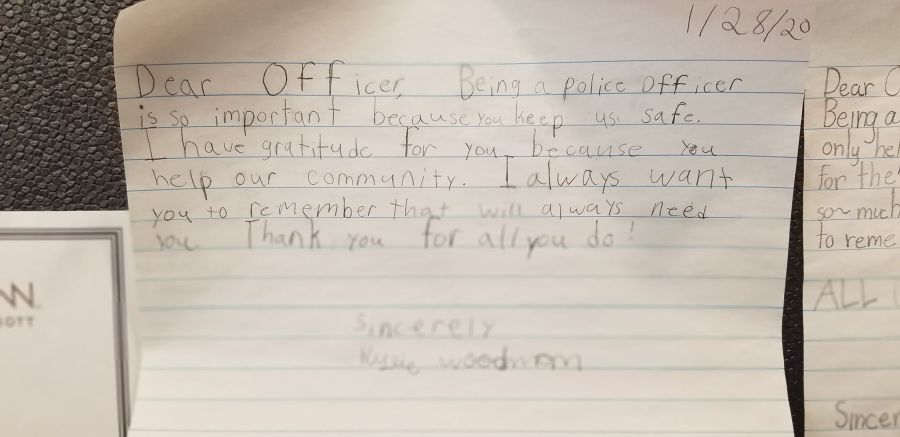 1/28/20
Dear Officer, Being a police officer
is so important because you keep us safe.
I have gratitude for you, because you
help our community. I always want
you to remember that will always need
you Thank you for all you do!
Sincerely
woodman
Dear
Being a
only
for the
so much
to reme
ALL
Sincer